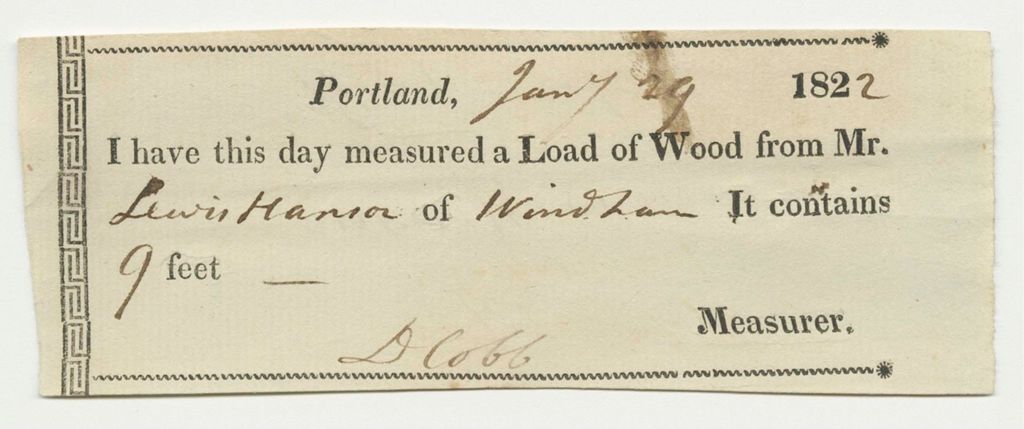 Portland, Jany 29 1822
I have this day measured a Load of Wood from Mr.
Lewis Hanson of Windham It contains
9 feet —
Measurer.
D Cobb